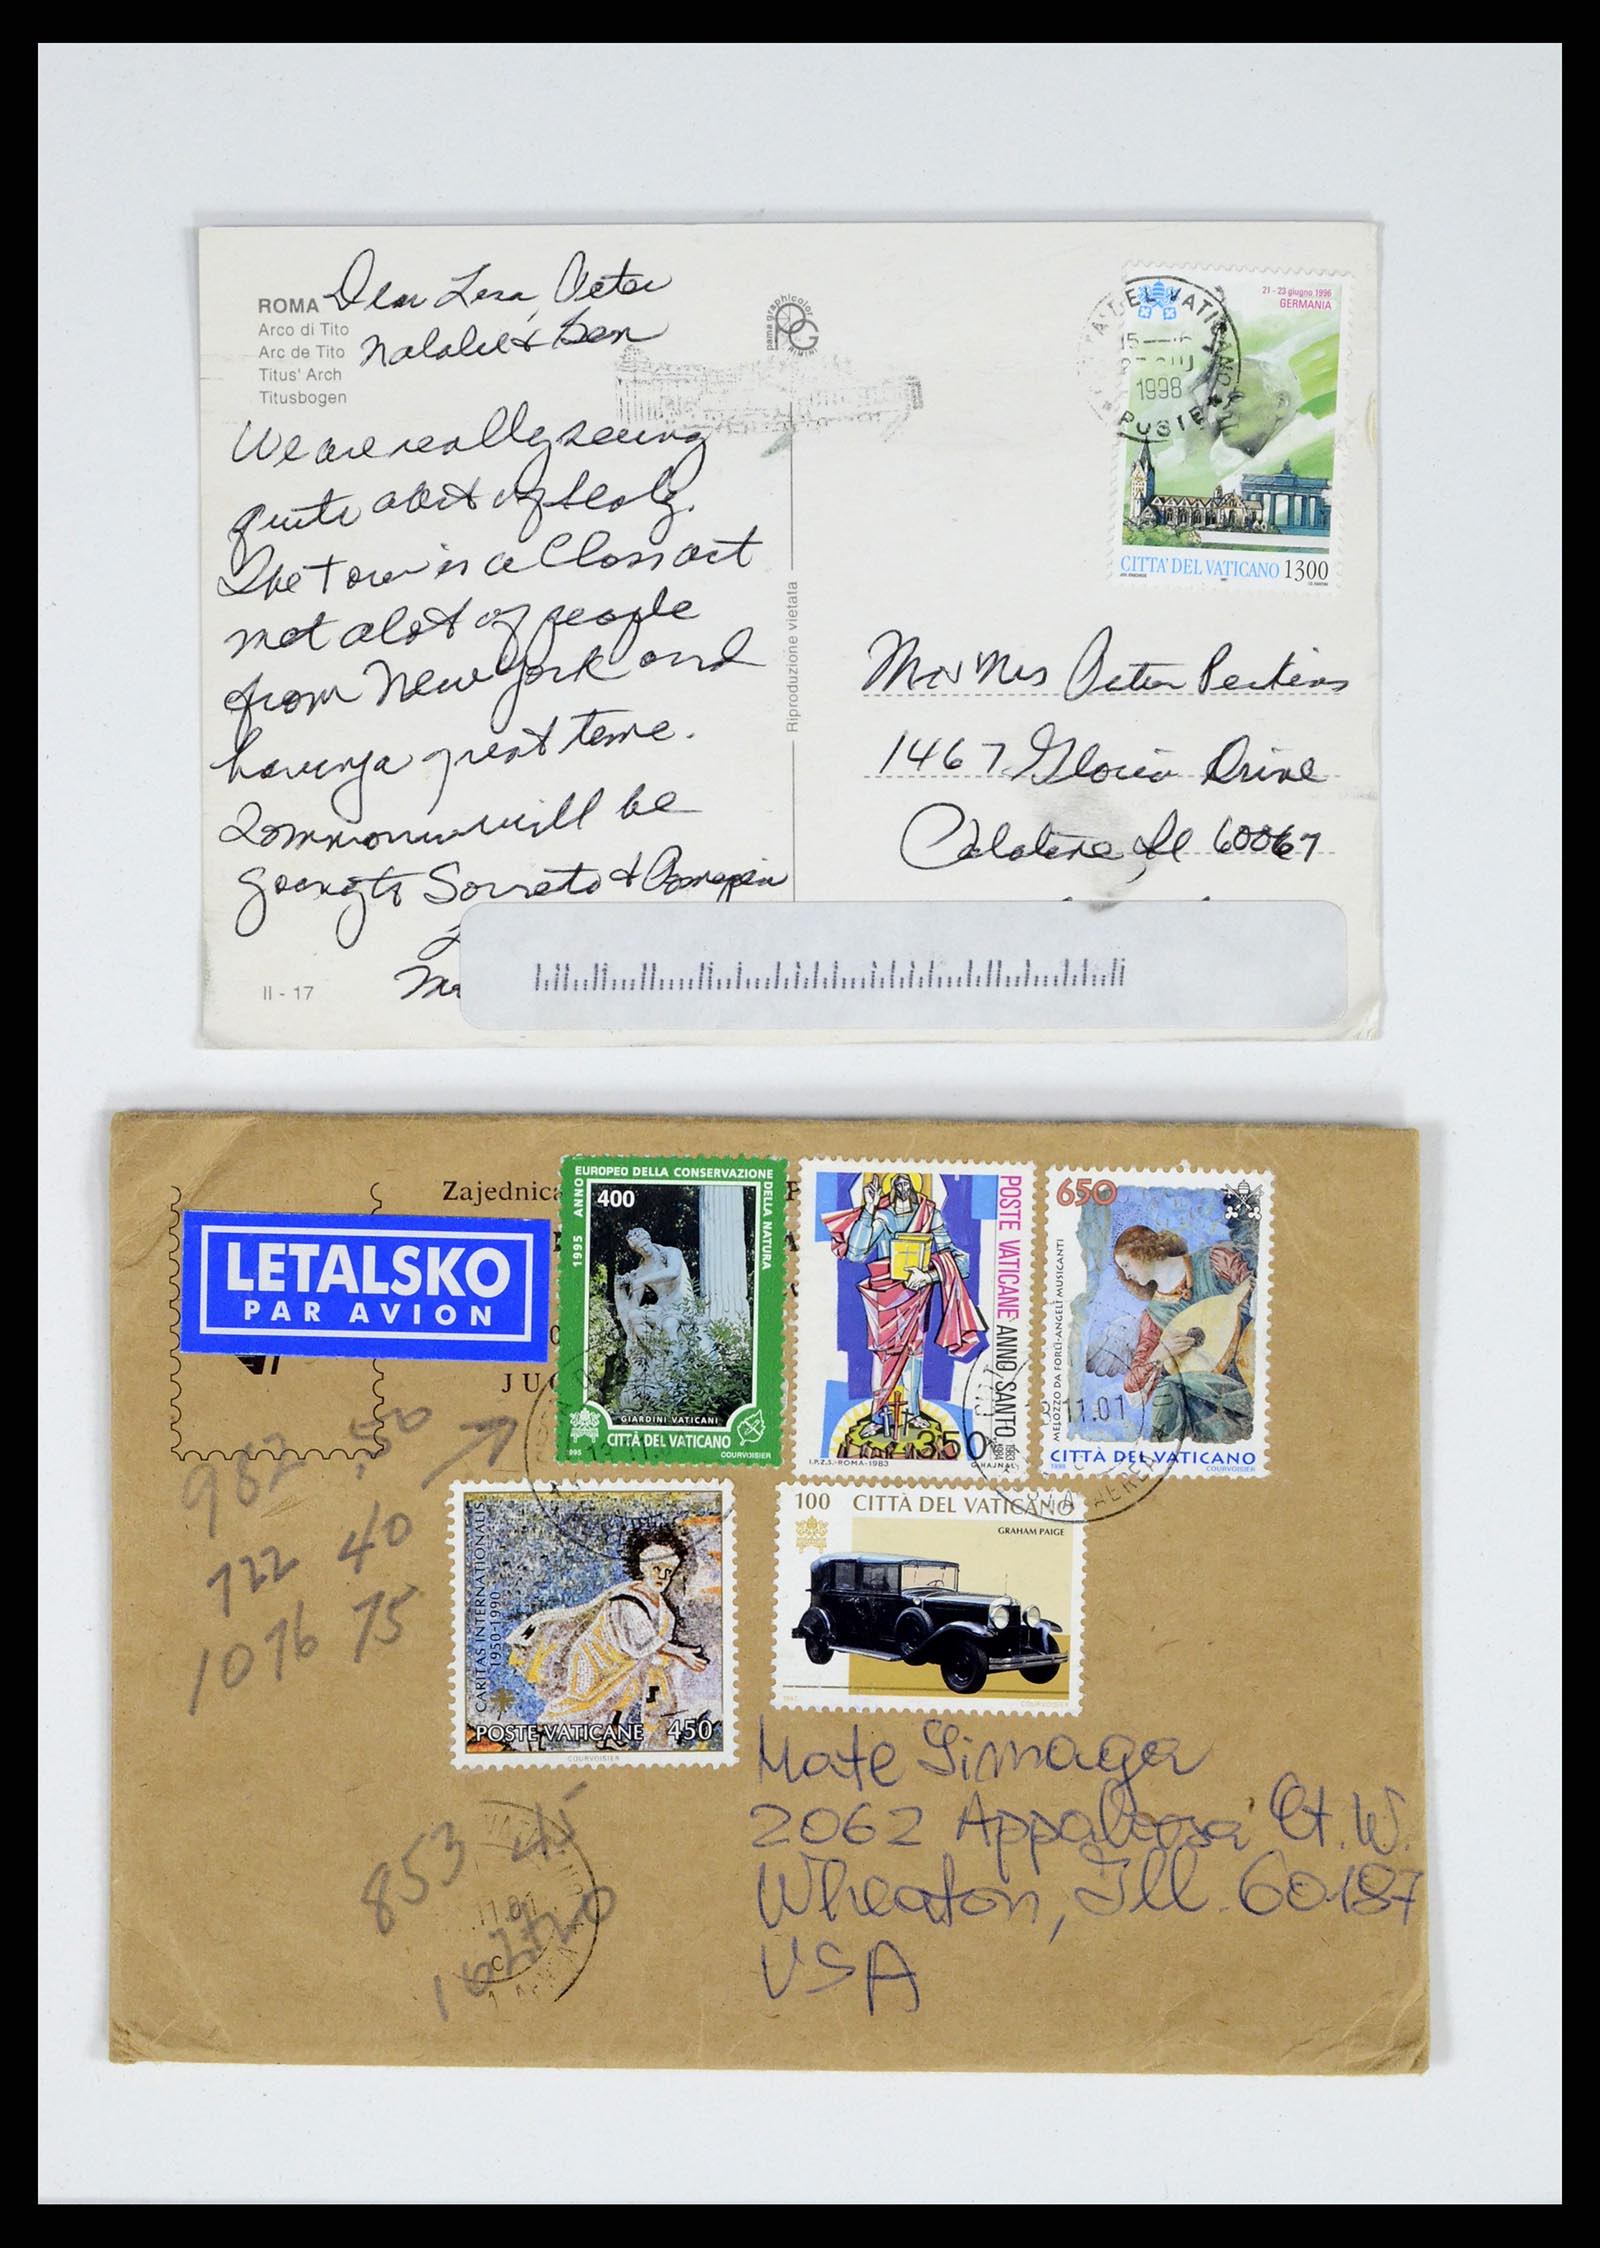 ROMA
Arco di Tito
Arc de Tito
Titus' Arch
Titusbogen
Dear Lisa, Peter
Natalie & Ben
We are really seeing
quite a bit of Italy.
The tour is a Class act
met a lot of people
from New York and
having a great time.
Tommorow will be
going to Sorreto & Pompeii
II - 17
pama graphicolor
RIMINI
Riproduzione vietata
21 - 23 giugno 1996
GERMANIA
1998
POSTE
CITTA' DEL VATICANO 1300
Mr & Mrs Peter Perkins
1467 Gloria Drive
Palatine, Il 60067
Zajednica
LETALSKO
PAR AVION
1995 ANNO EUROPEO DELLA CONSERVAZIONE DELLA NATURA
400
GIARDINI VATICANI
CITTÀ DEL VATICANO
1995
COURVOISIER
POSTE VATICANE ANNO SANTO 1983 1984
350
I.P.Z.S.-ROMA-1983
G.HAJNAL
650
MELOZZO DA FORLÌ-ANGELI MUSICANTI
CITTÀ DEL VATICANO
1998
COURVOISIER
11.01
982 .50
722 40
1076 75
CARITAS INTERNATIONALIS
1950-1990
POSTE VATICANE 450
COURVOISIER
100 CITTÀ DEL VATICANO
GRAHAM PAIGE
1997
COURVOISIER
Mate Simaga
2062 Appaloosa Ct. W.
Wheaton, Ill. 60187
USA
853 45
11.01